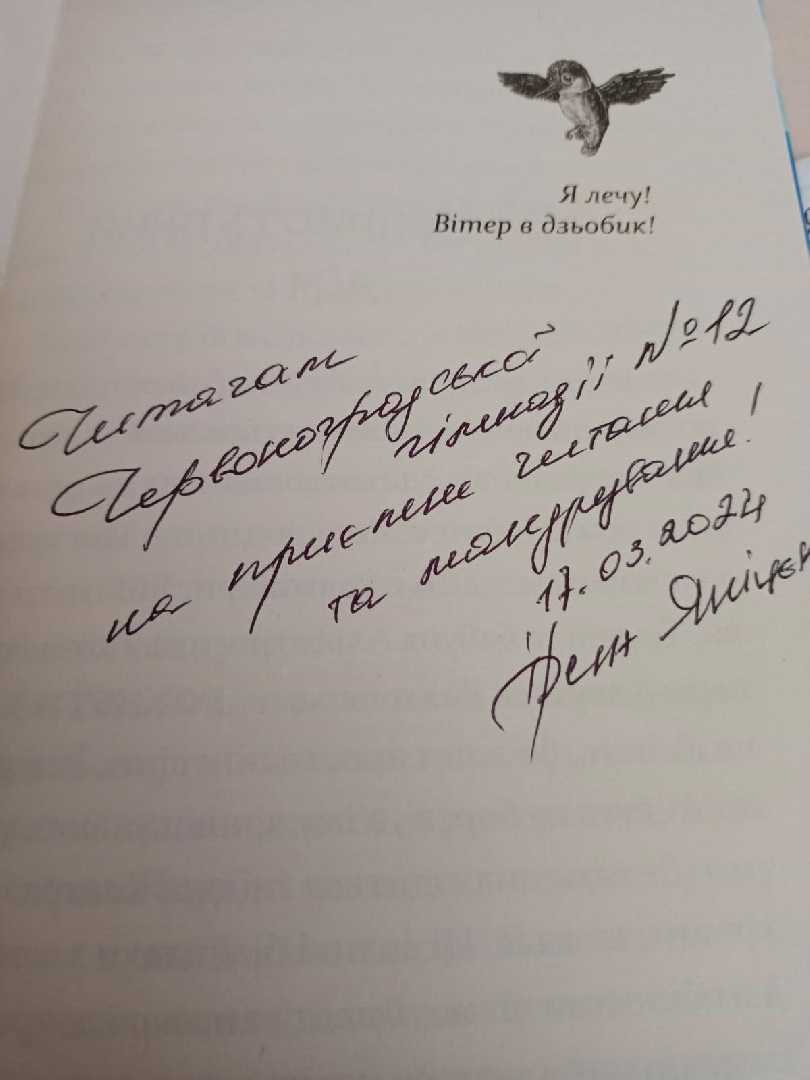 Я лечу!
Вітер в дзьобик!
Читачам
Червоноградської
гімназії №12
на приємне читання
та мандрування!
17.03.2024